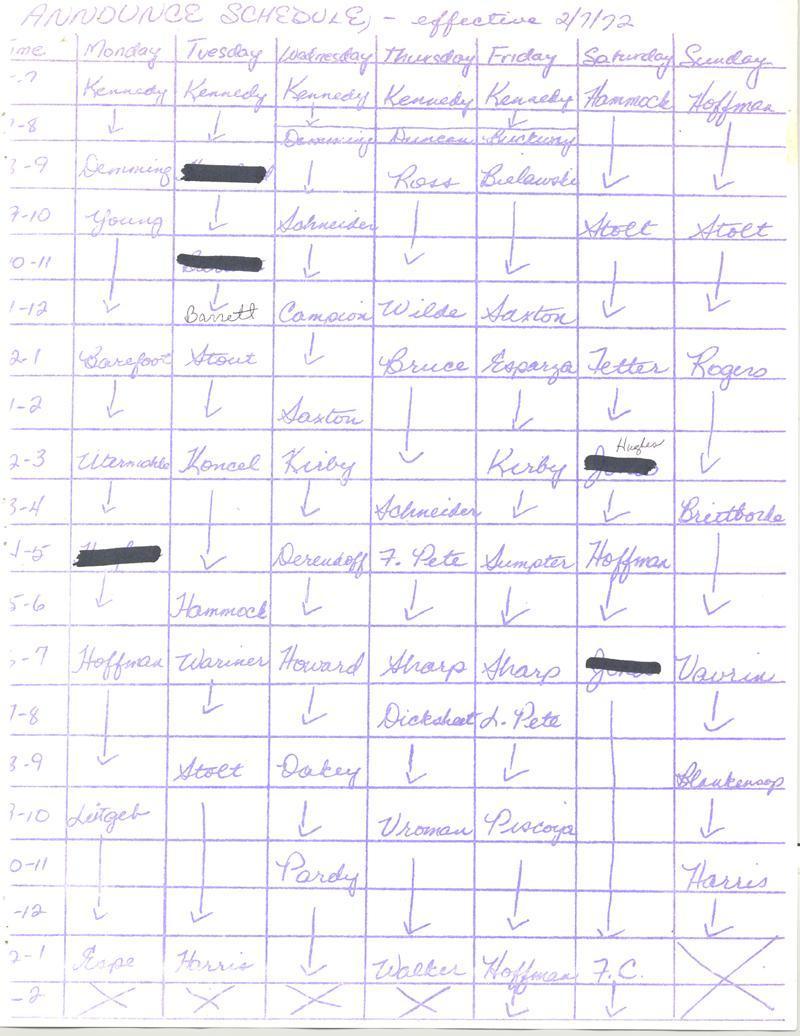 ANNOUNCE SCHEDULE, - effective 2/7/72
ime Monday Tuesday Wednesday Thursday Friday Saturday Sunday
-7 Kennedy Kennedy Kennedy Kennedy Kennedy Hammock Hoffman
7-8 ↓ ↓ ↓ ↓ ↓ ↓
Demming Duncan
8-9 Demming ↓ Ross Bielawski
9-10 Young ↓ Schneider ↓ ↓ Stolt Stolt
0-11 ↓ ↓ ↓ ↓
1-12 ↓ Barrett Campion Wilde Saxton
2-1 Barefoot Stout ↓ Bruce Esparza Tetter Rogers
1-2 ↓ ↓ Saxton ↓ ↓ ↓ ↓
Hughes
2-3 Utermoehle Koncel Kirby Kirby
3-4 ↓ ↓ ↓ Schneider ↓ ↓ Breitborde
4-5 Derendoff F. Pete Sumpter Hoffman ↓
5-6 ↓ Hammock ↓ ↓ ↓ ↓
-7 Hoffman Wariner Howard Sharp Sharp Vavrin
7-8 ↓ ↓ ↓ Dicksheet L. Pete ↓ ↓
8-9 Stolt Oakey ↓ ↓ Blankensop
9-10 Litgeb ↓ ↓ Vroman Piscoya ↓
0-11 ↓ Pardy ↓ ↓ Harris
-12 ↓ ↓
2-1 Espe Harris ↓ Walker Hoffman F.C.
-2 ↓ ↓